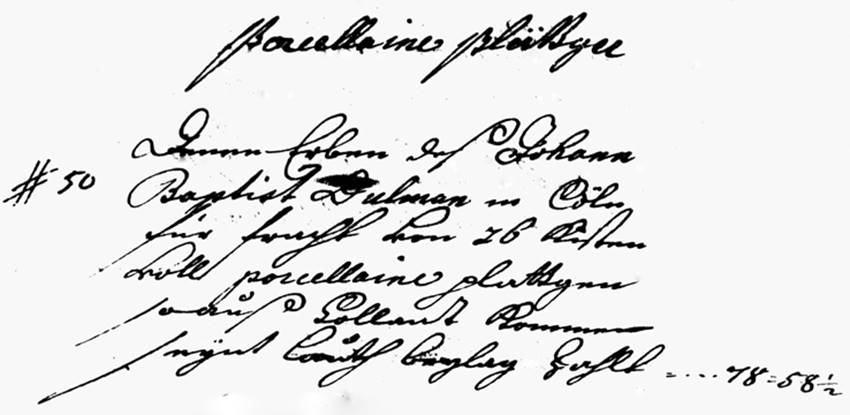 Porcellaine plättger
Denen Erben des Johann
# 50 Baptist Dulman in Cöln
für fracht von 26 Kisten
voll porcellaine plattgen
so auß Hollant kommen
seynt lauth beylag zahlt =....78=58½